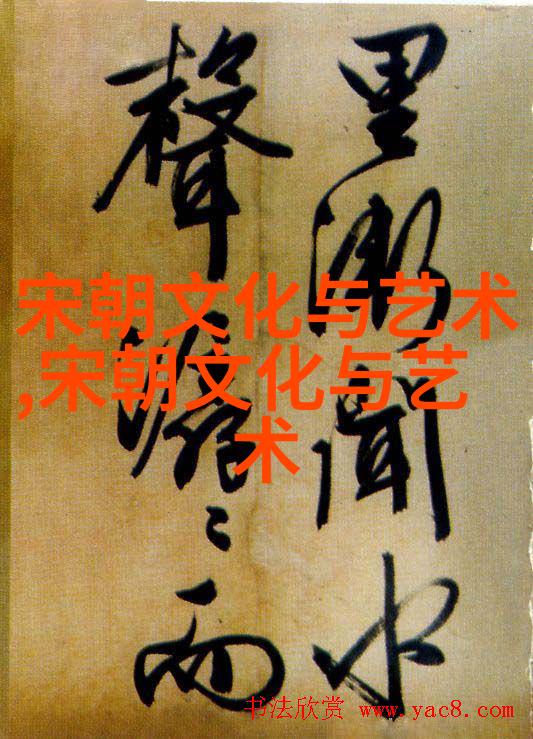 里漸聞水
聲潺〻而
宋朝文化与艺术
,宋朝文化与艺
术
书法欣赏 www.yac8.com